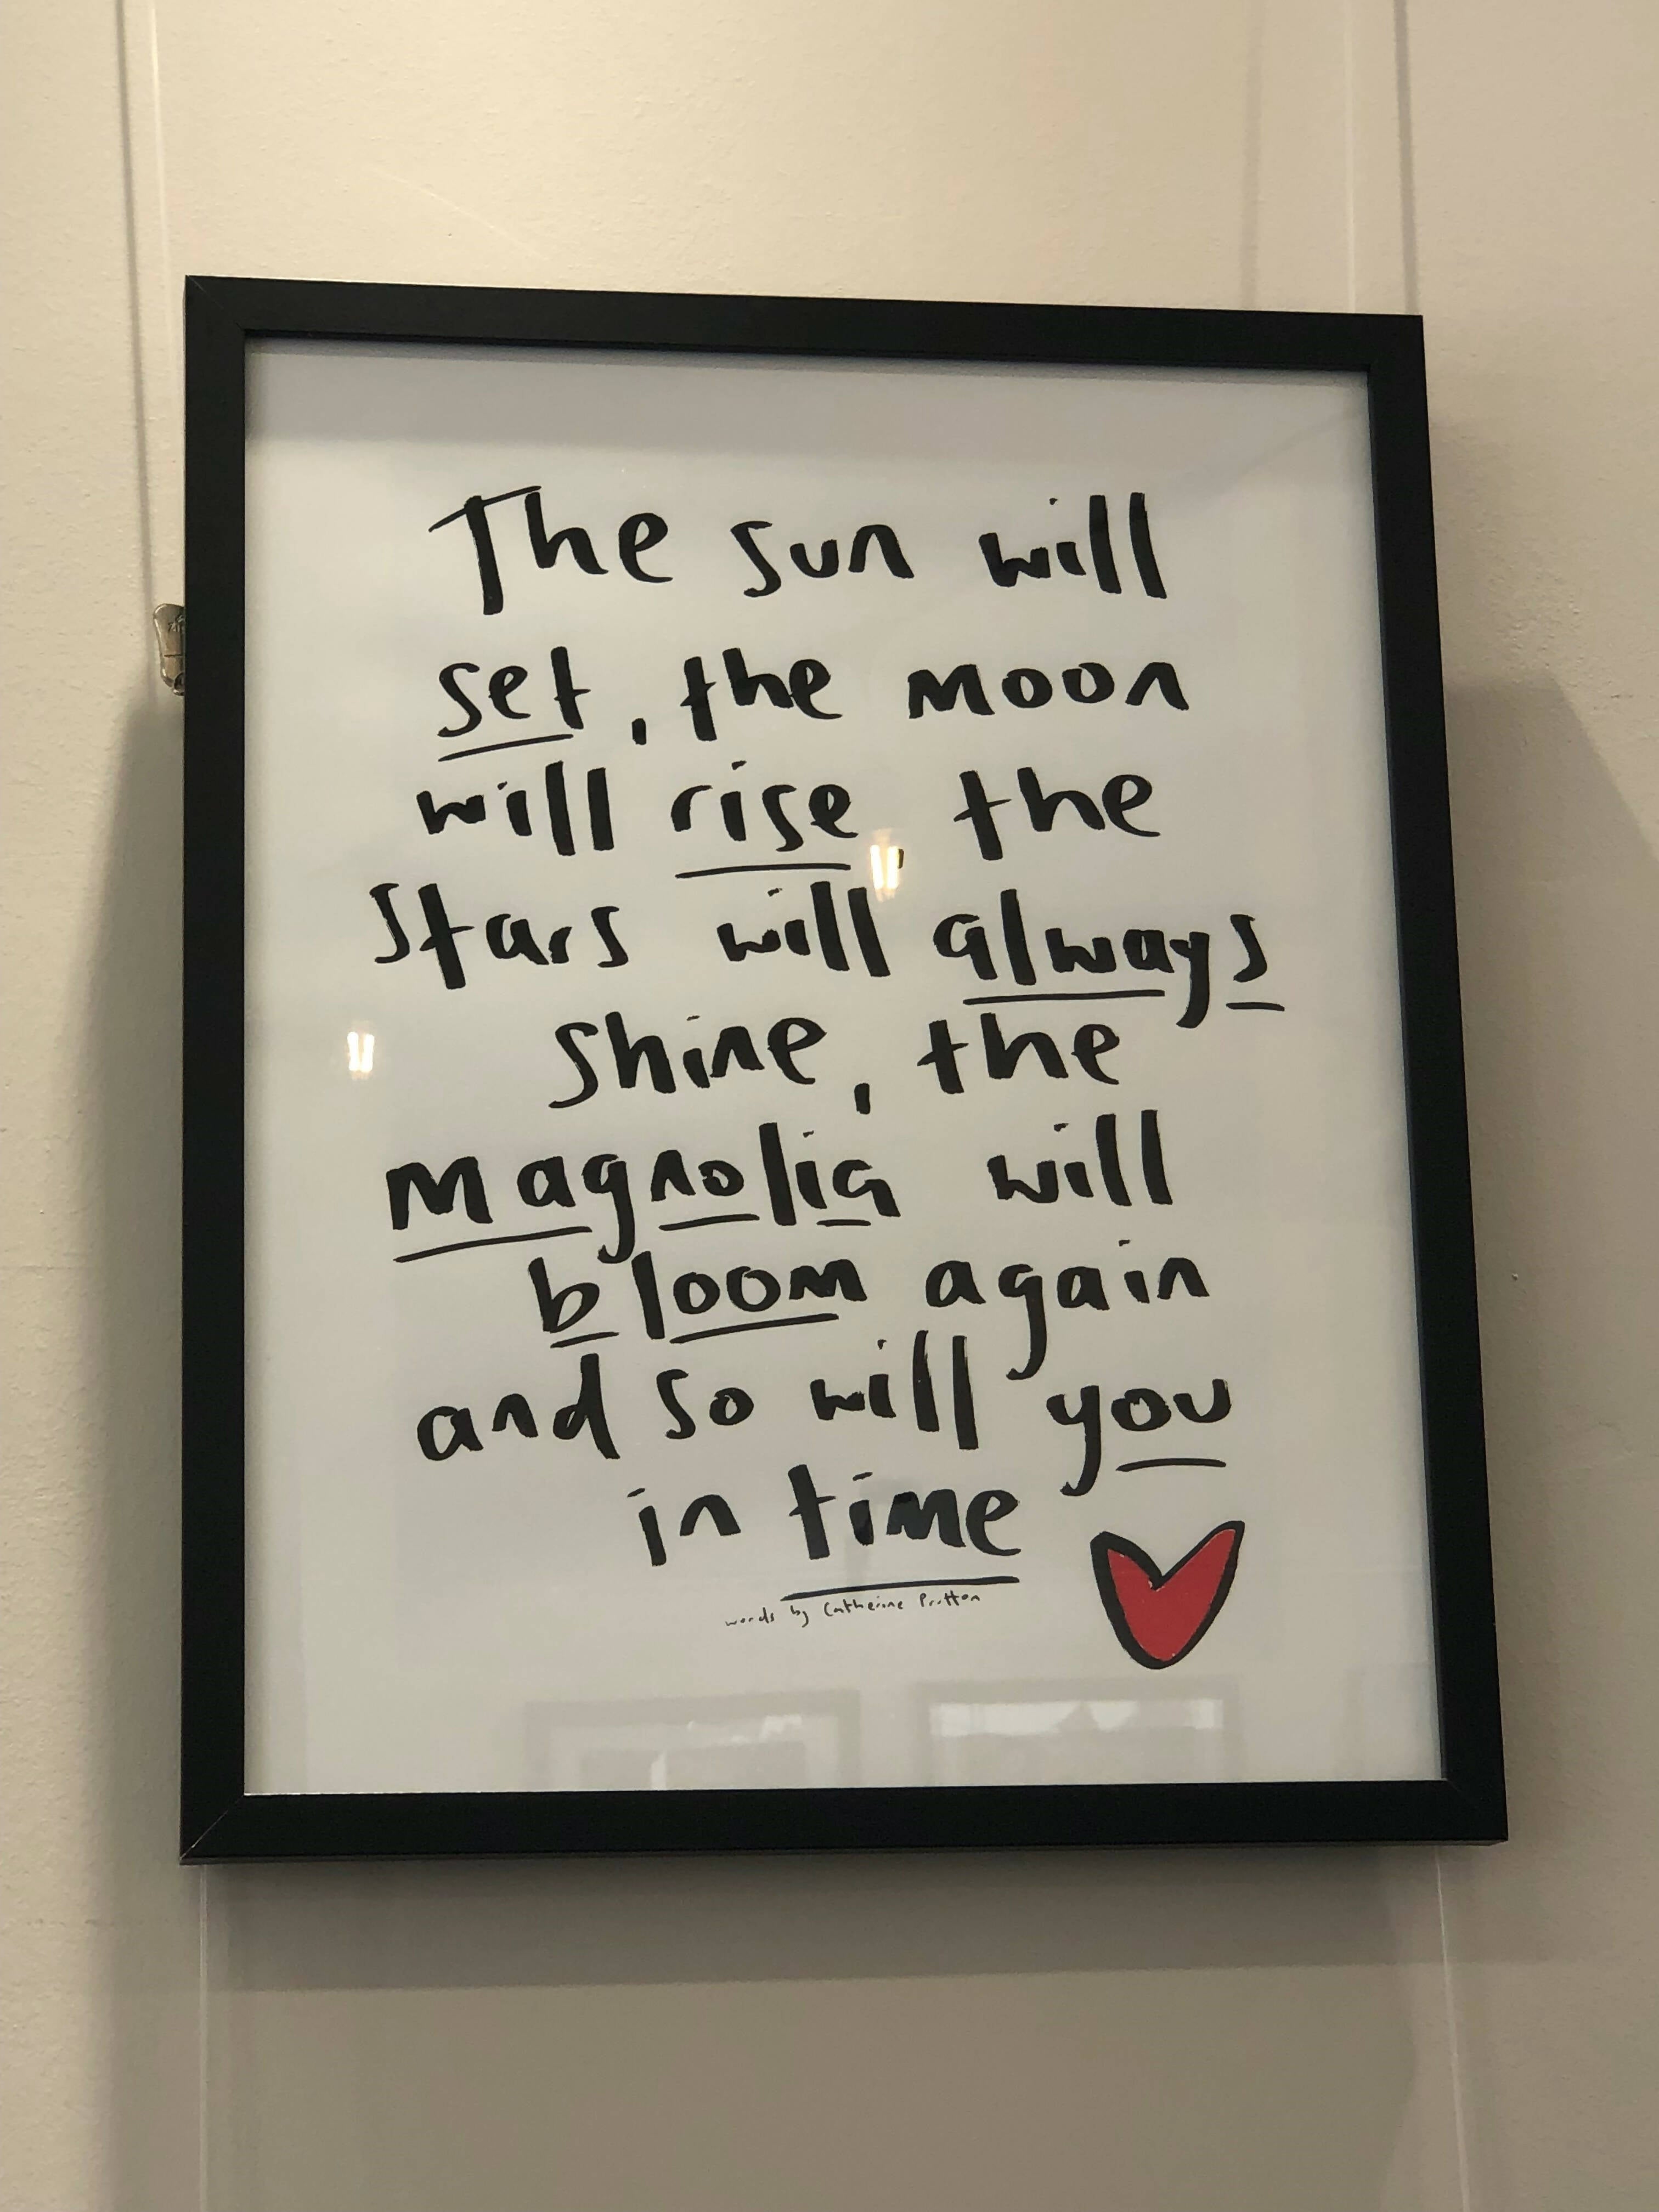 The sun will
set, the moon
will rise the
stars will always
shine, the
magnolia will
bloom again
and so will you
in time
words by Catherine Prutton